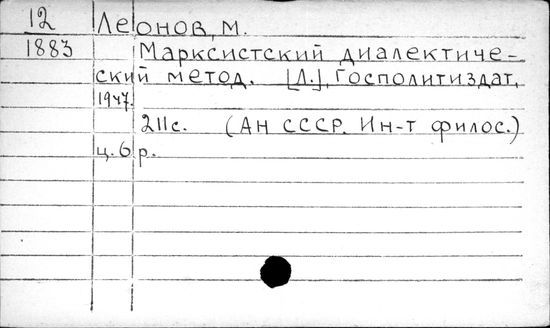 12
1883
Леонов, М.
Марксистский диалектиче-
ский метод. [Л.], Госполитиздат,
1947.
211с. (АН СССР. Ин-т филос.)
ц. 6 р.